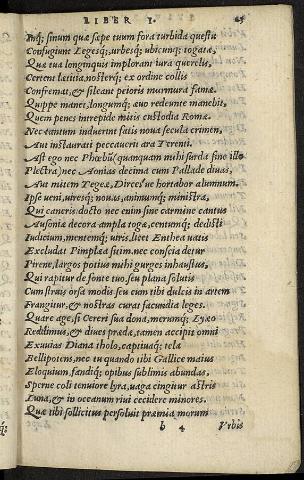 LIBER I.
Inq; sinum quæ sæpe tuum fora turbida questu
Confugiunt Legesq;, urbesq; ubicunq; togatæ,
Quæ tua longinquis implorant iura querelis,
Certent lætitia, nosterq; ex ordine collis
Confremat, & sileant peioris murmura famæ.
Quippe manet, longumq; æuo redeunte manebit,
Quem penes intrepidæ mitis custodia Romæ.
Nec tantum induerint fatis noua secula crimen,
Aut instaurati peccauerit ara Terenti.
Ast ego nec Phœbū (quanquam mihi surda sine illo
Plectra) nec Aonias decima cum Pallade diuas,
Aut mitem Tegeæ, Dirces'ue hortabor alumnum.
Ipse ueni, uiresq; nouas, animumq; ministra,
Qui caneris. docto nec enim sine carmine cantus
Ausoniæ decora ampla togæ, centumq; dedisti
Iudicium, mentemq; uiris. licet Enthea uatis
Excludat Pimplæa sitim. nec conscia detur
Pirene, largos potius mihi gurges in haustus,
Qui rapitur de fonte tuo, seu plana solutis
Cum struis orsa modis seu cum tibi dulcis in artem
Frangitur, & nostras curat facundia leges.
Quare age, si Cereri sua dona, merumq; Lyæo
Reddimus, & diues præda, tamen accipit omni
Exuuias Diana tholo, captiuaq; tela
Bellipotens, nec tu quando tibi Gallice maius
Eloquium, fandiq; opibus sublimis abundas,
Sperne coli tenuiore lyra, uaga cingitur astris
Luna, & in oceanum riui cecidere minores.
Quæ tibi sollicitus persoluit præmia morum
b 4 Vrbis